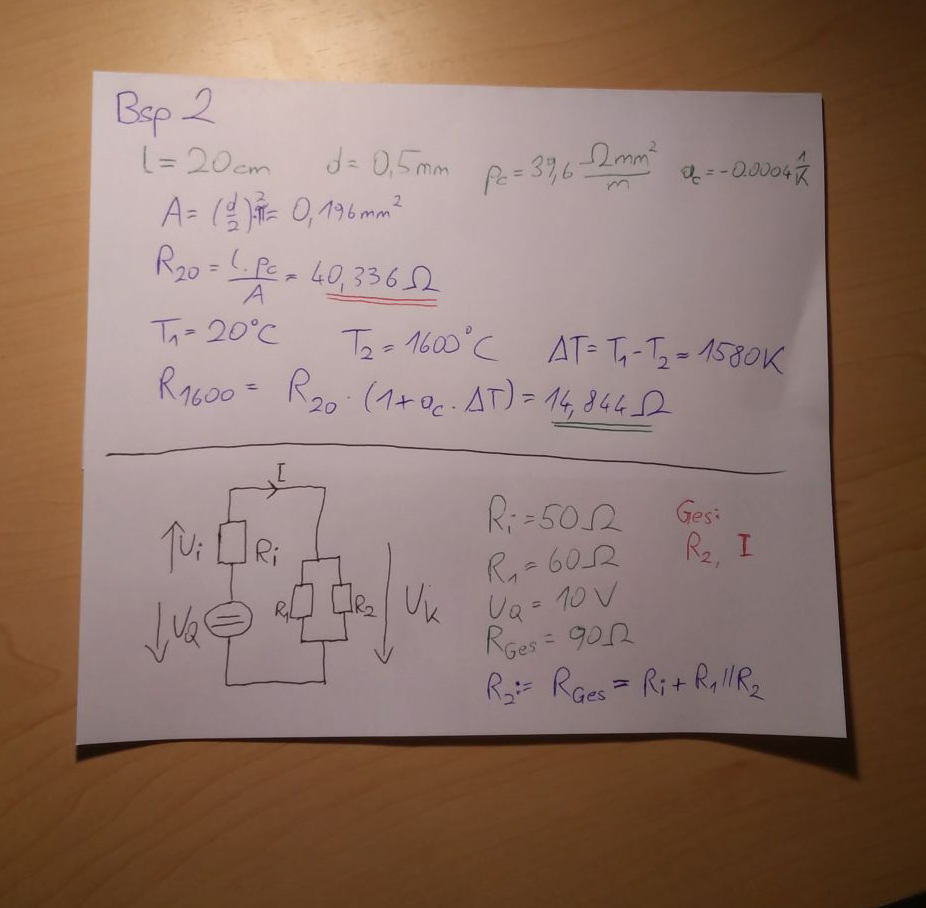 Bsp 2
l = 20cm d = 0,5mm ρc = 39,6 Ωmm²/m αc = -0.0004 1/K
A = (d/2)²·π = 0,196mm²
R20 = l·ρc/A = 40,336Ω
T1 = 20°C T2 = 1600°C ΔT = T1-T2 = 1580K
R1600 = R20 · (1+αc·ΔT) = 14,844Ω
I
Ui Ri
UQ R1 R2 UK
Ri = 50Ω Ges:
R1 = 60Ω R2, I
UQ = 10V
RGes = 90Ω
R2:= RGes = Ri + R1//R2